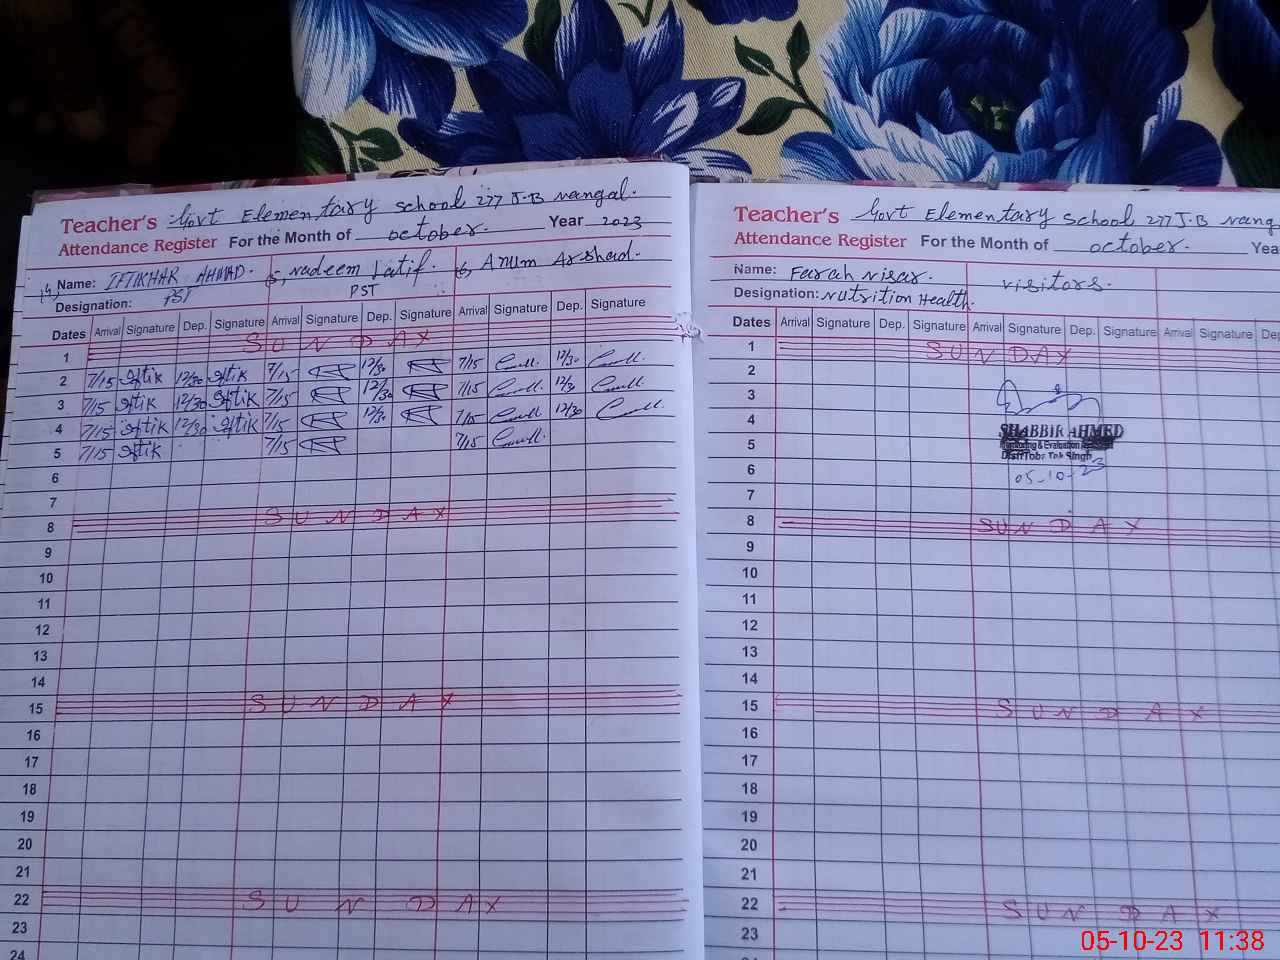 Teacher's Govt Elementary school 277 J.B Nangal.
Attendance Register For the Month of october. Year 2023
4, Name: IFTIKHAR AHMAD. 5, Nadeem Latif. 6, Anum Arshad.
Designation: PST PST
Dates Arrival Signature Dep. Signature Arrival Signature Dep. Signature Arrival Signature Dep. Signature
1 SUNDAY
2 7/15 Iftik 12/30 Iftik 7/15 12/30 7/15 12/30
3 7/15 Iftik 12/30 Iftik 7/15 12/30 7/15 12/30
4 7/15 Iftik 12/30 Iftik 7/15 12/30 7/15 12/30
5 7/15 Iftik 7/15 7/15
6
7
8 SUNDAY
9
10
11
12
13
14
15 SUNDAY
16
17
18
19
20
21
22 SUNDAY
23
24
Teacher's Govt Elementary school 277 J.B Nang
Attendance Register For the Month of october. Yea
Name: Farah Nisar. visitors.
Designation: Nutrition Health.
Dates Arrival Signature Dep. Signature Arrival Signature Dep. Signature Arrival Signature De
1 SUNDAY
2
3
4 SHABBIR AHMED
5 Monitoring & Evaluation
Distt Toba Tek Singh
6 05-10-23
7
8 SUNDAY
9
10
11
12
13
14
15 SUNDAY
16
17
18
19
20
21
22 SUNDAY
23
05-10-23 11:38